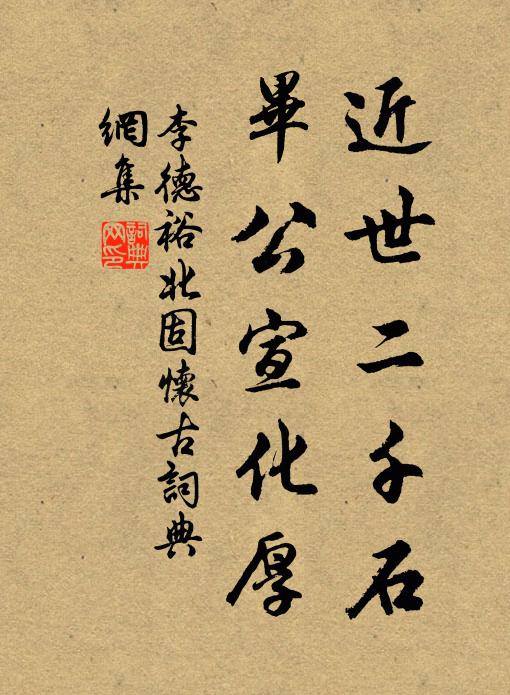 近世二千石
畢公宣化厚
李德裕北固懷古詞典
網集
詞典
网印